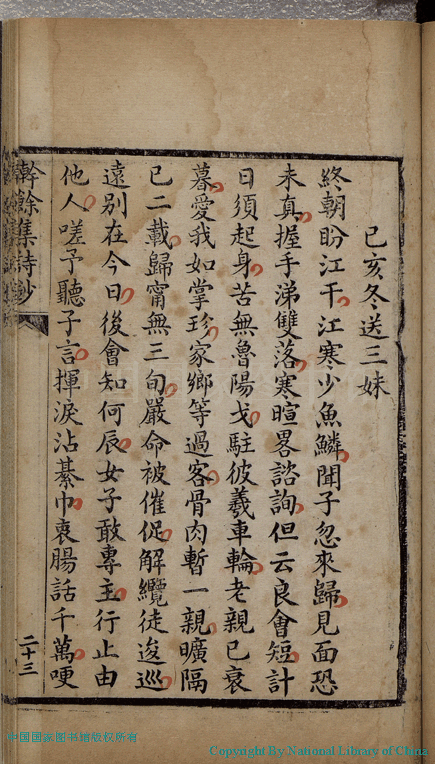 己亥冬送三妹
終朝盼江干江寒少魚鱗聞子忽來歸見面恐
未真握手涕雙落寒暄畧諮詢但云良會短計
日須起身苦無魯陽戈駐彼羲車輪老親已衰
暮愛我如掌珍家鄉等過客骨肉暫一親曠隔
已二載歸甯無三旬嚴命被催促解纜徒逡巡
遠别在今日後會知何辰女子敢專主行止由
他人嗟予聽子言揮淚沾綦巾衷腸話千萬哽
餘集詩鈔
二十三
中国国家图书馆版权所有
Copyright By National Library of China